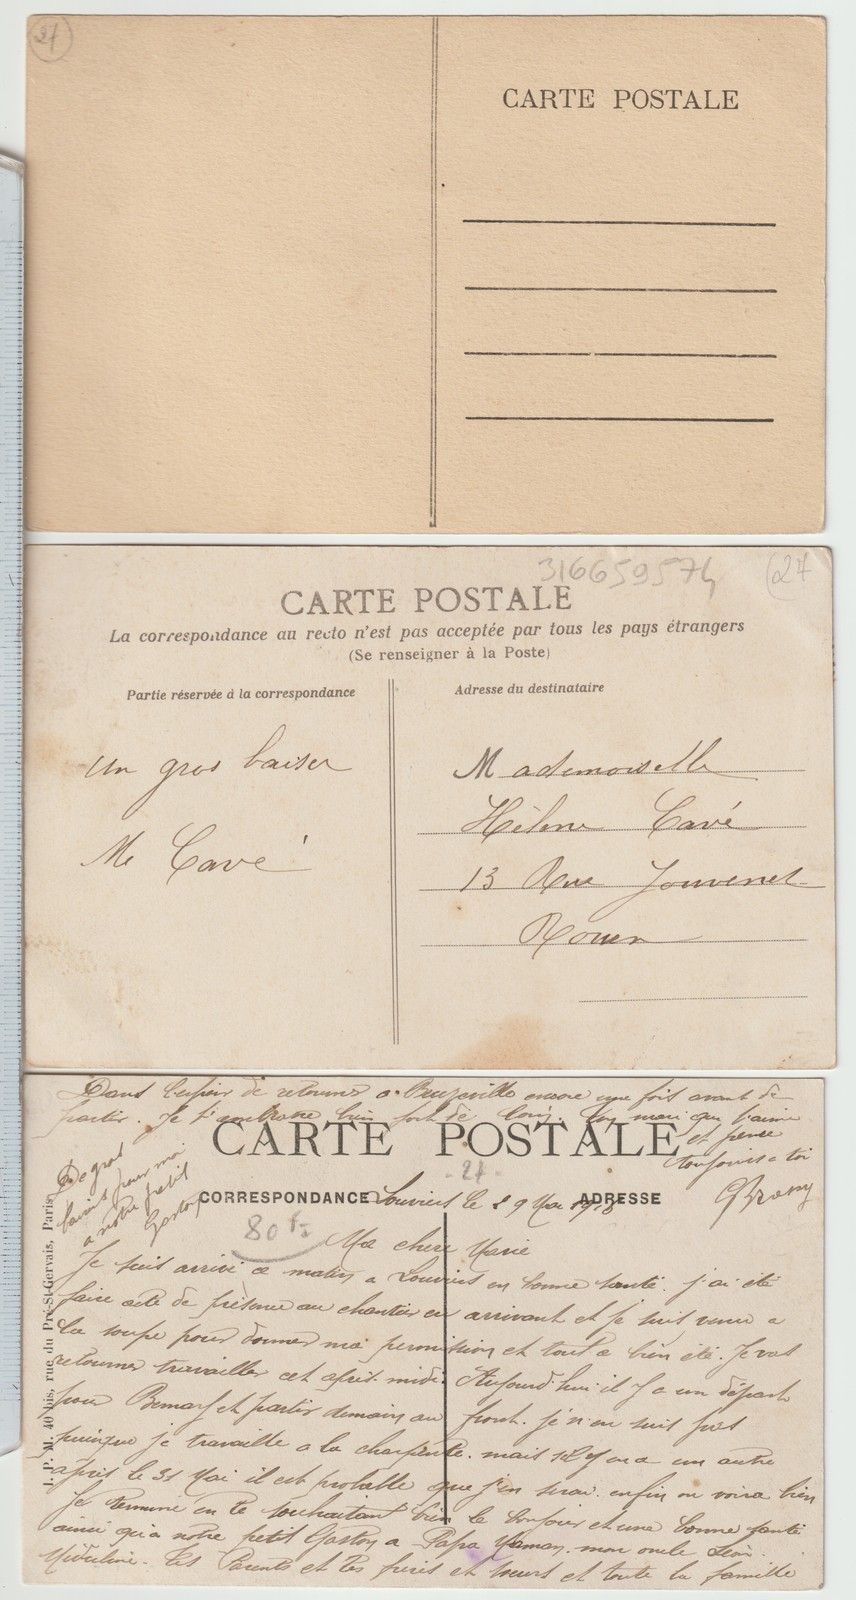 27
CARTE POSTALE
316659574
27
CARTE POSTALE
La correspondance au recto n'est pas acceptée par tous les pays étrangers
(Se renseigner à la Poste)
Partie réservée à la correspondance
Adresse du destinataire
un gros baiser
M Cavé
Mademoiselle
Hélène Cavé
13 Rue Jouvenet
Rouen
Dans l'espoir de retourner a Buzeville encore une fois avant de
partir. Je t'embrasse bien fort de loin. Ton mari qui t'aime
et pense
toujours a toi
De gros
baisers pour moi
a notre petit
Gaston
CARTE POSTALE
27
CORRESPONDANCE
ADRESSE
Louviers le 29 Mai 1918
80 F
J. P. M. 40 bis, rue du Pré-St-Gervais, Paris
Ma chere Marie
Je suis arrivé ce matin a Louviers en bonne santé. j'ai été
faire acte de présence au chantier en arrivant et je suis venu a
la soupe pour donner ma permission et tout a bien été. Je vas
retourner travailler cet après midi. Aujourd'hui il y a un départ
pour et partir demain au front. je n'en suis pas
puisque je travaille a la charpente. mais il y en a un autre
après le 31 Mai il est probable que j'en serai. enfin on voira bien
Je termine en te souhaitant bien le bonjour et une bonne santé
ainsi qu'a notre petit Gaston a Papa Maman. mon oncle Léon.
tes Parents et tes frères et soeurs et toute la famille